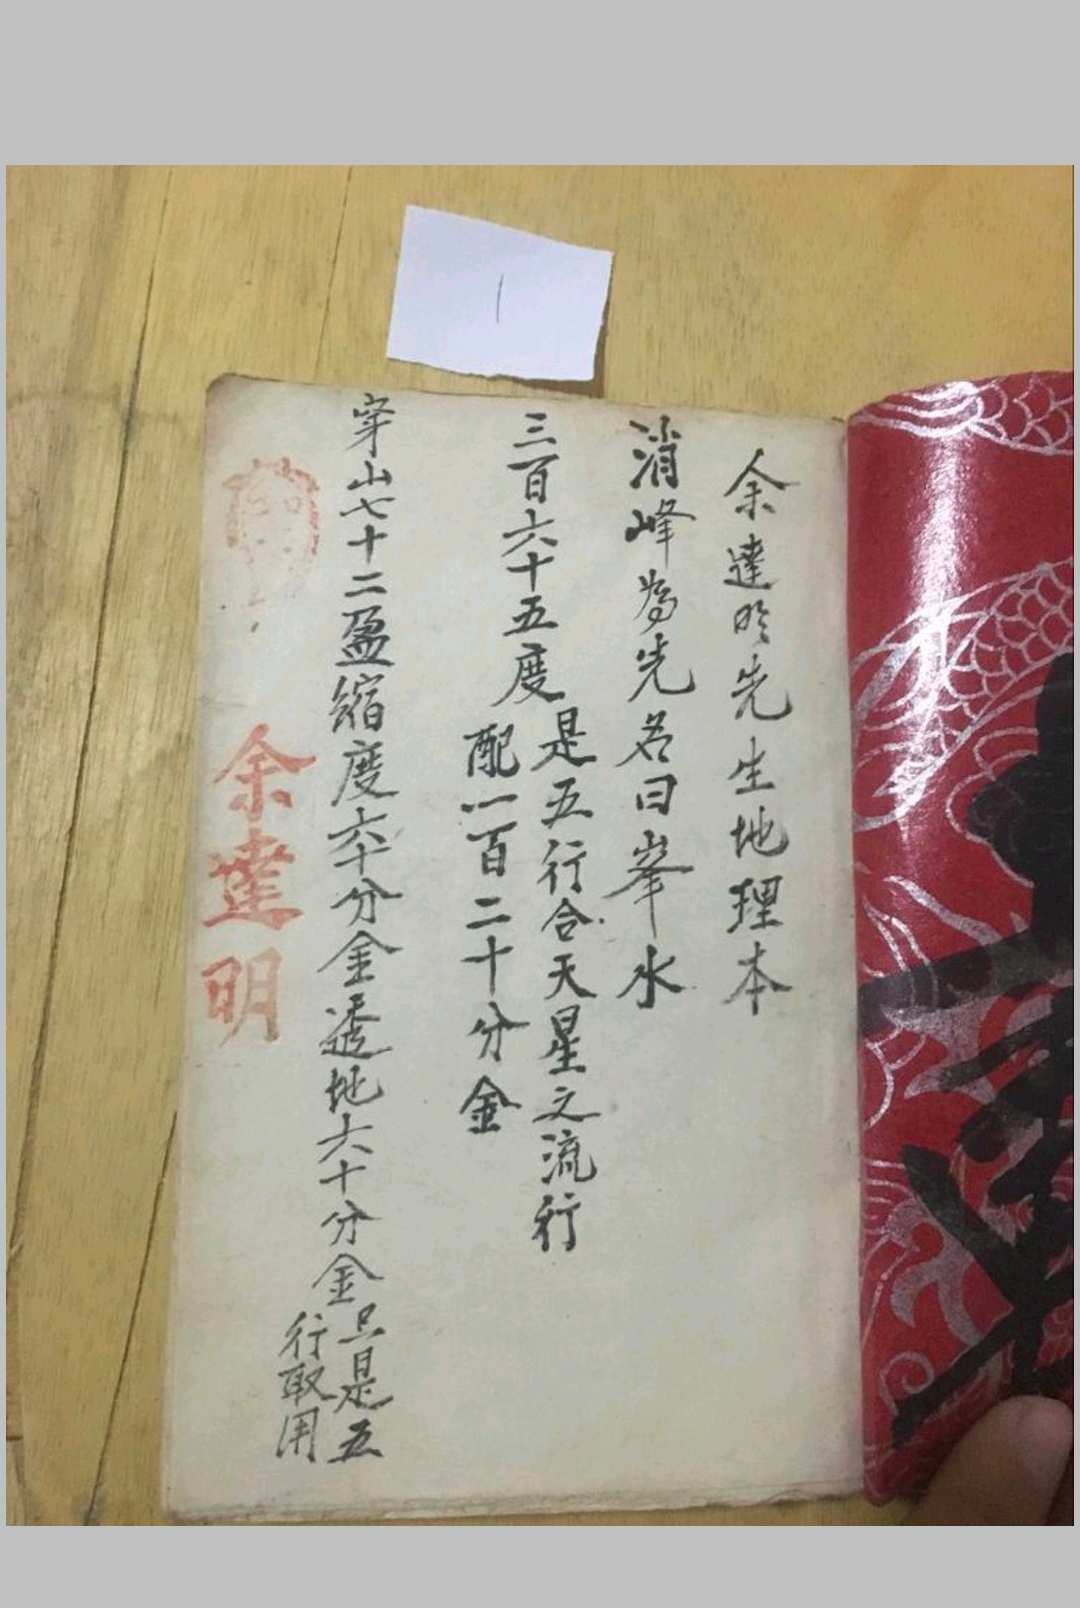 余達明先生地理本
消峰為先名曰峯水
三百六十五度
是五行合天星之流行
配一百二十分金
穿山七十二盈縮度六十分金透地六十分金
只是五
行取用
余達明
1